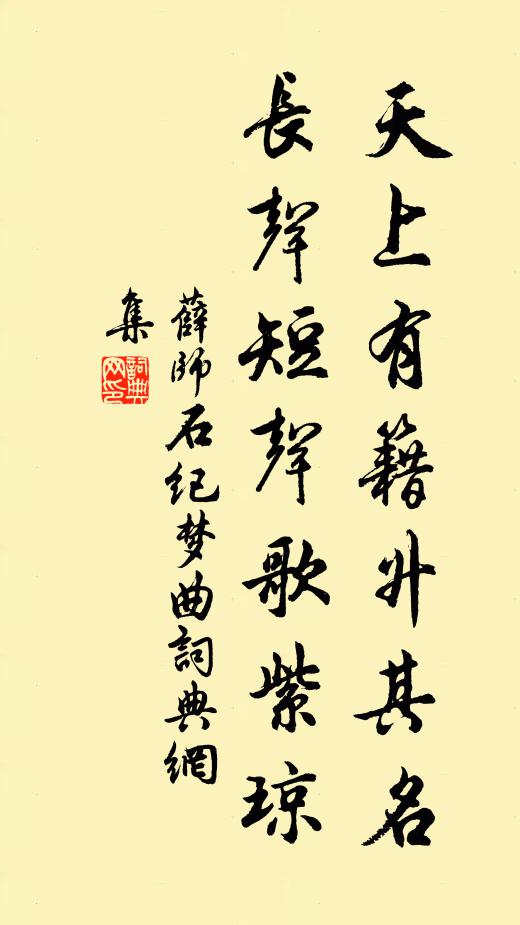 天上有籍升其名
長聲短聲歌紫琼
薛師石纪梦曲詞典網
集
詞典
网印